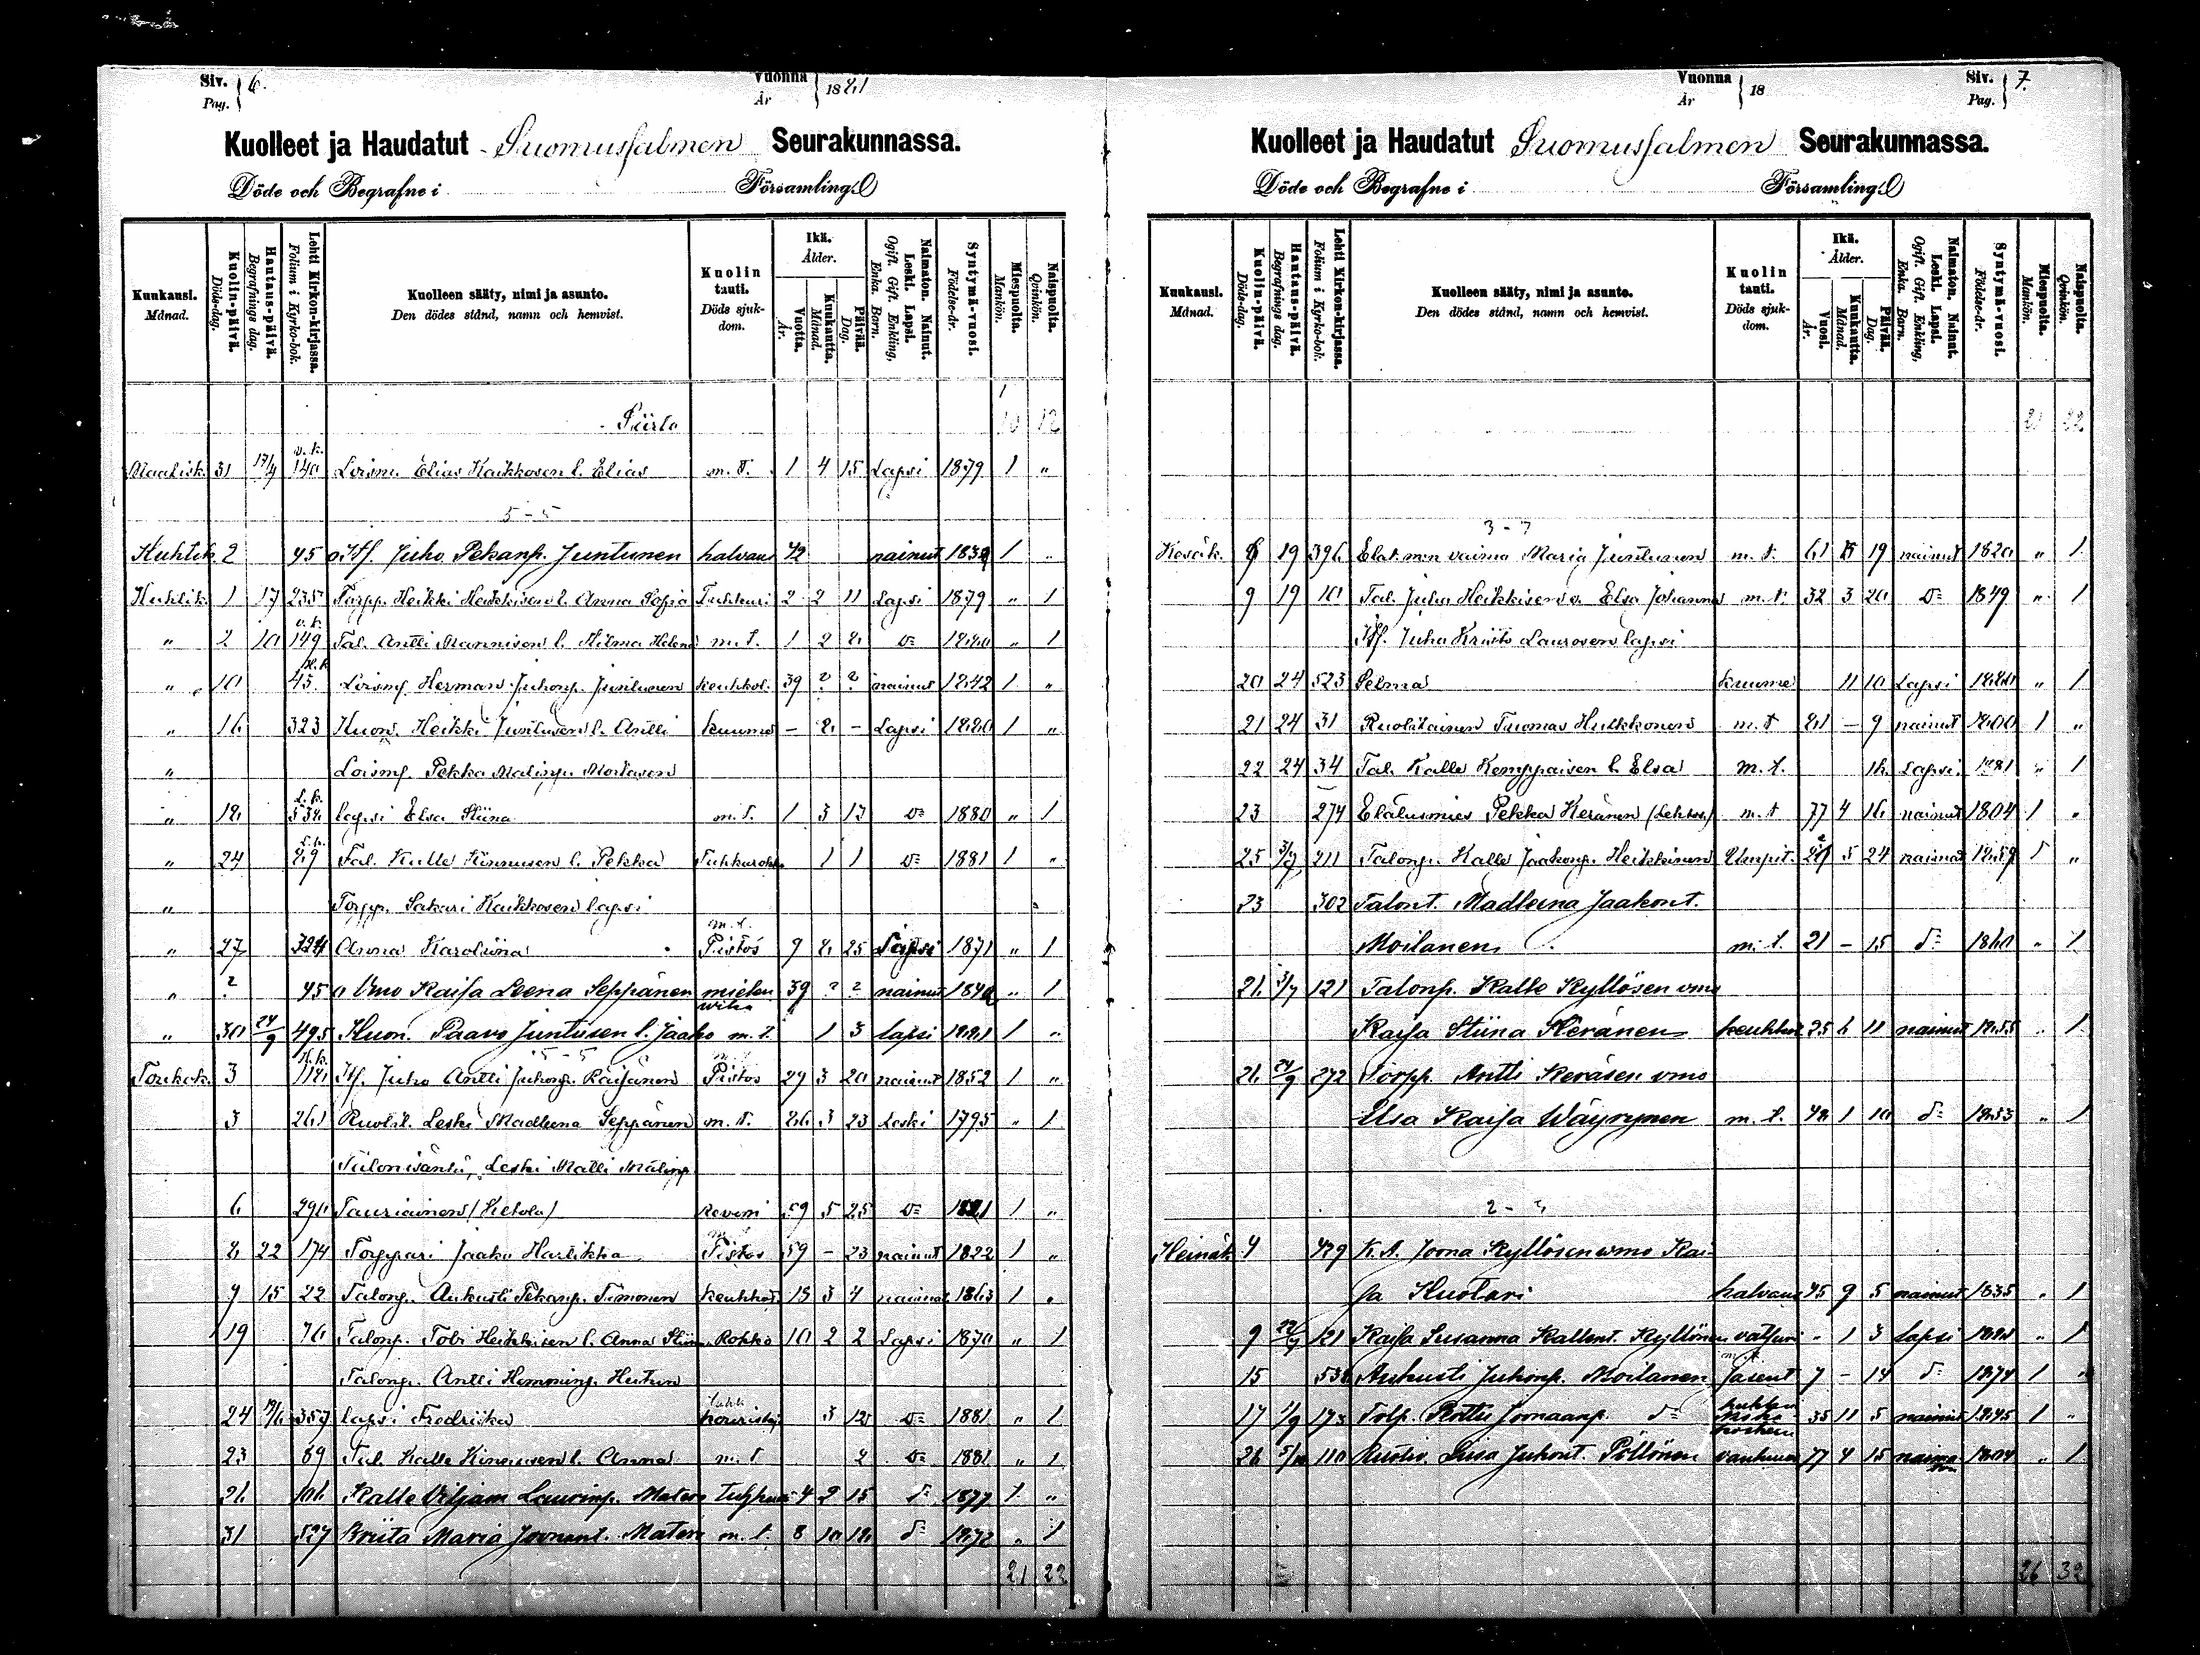 Siv. Pag. 6. Vuonna År 1881
Kuolleet ja Haudatut Suomussalmen Seurakunnassa.
Döde och Begrafne i Församling
Kuukausi. Månad. Kuolin-päivä. Döds-dag. Hautaus-päivä. Begrafnings dag. Lehti Kirkon-kirjassa. Folium i Kyrko-bok. Kuolleen sääty, nimi ja asunto. Den dödes stånd, namn och hemvist. Kuolin tauti. Döds sjukdom. Ikä. Ålder. Vuotta. År. Kuukautta. Månad. Päivää. Dag. Naimaton. Nainut. Leski. Lapsi. Ogift. Gift. Enkling. Enka. Barn. Syntymä-vuosi. Födelse-år. Miespuolta. Mankön. Naispuolta. Qvinkön.
Siirto 10 12
Maalisk. 31 17/4 v.k. 140 Loism. Elias Kaikkosen l. Elias m. t. 1 4 15 Lapsi 1879 1 "
5 - 5
Huhtik. 2 45 Its. Juho Pekanp. Juntunen halvaus 42 nainut 1839 1 "
Huhtik. 1 17 235 Torpp. Heikki Heikkisen l. Anna Sofia Tuhkuri 2 2 11 Lapsi 1879 " 1
" 2 10 149 Tal. Antti Mannisen l. Hilma Helena m. t. 1 2 8 d:o 1880 " 1
" 10 45 Loismj Herman Juhonp. Juntunen keuhkot. 39 ? ? nainut 1842 1 "
" 16 323 Huon. Heikki Juntusen l. Antti kuume - 8 - Lapsi 1880 1 "
" Loismj. Pekka Matinp. Moilasen
" 18 538 lapsi Elsa Stiina m. t. 1 3 13 d:o 1880 " 1
" 24 89 Tal. Kalle Kinnusen l. Pekka Tuhkurokko 1 1 d:o 1881 1 "
" Torpp. Sakari Kaikkosen lapsi
" 27 324 Anna Karoliina m. t. Pistos 9 8 25 Lapsi 1871 " 1
" ? 45 Vmo Kaisa Leena Seppänen mielenvika 39 ? ? nainut 1842 " 1
" 30 24/9 495 Huon. Paavo Juntusen l. Jaako m. t. 1 3 lapsi 1881 1 "
5 - 5
Toukok. 3 118 Its. Juho Antti Juhonp. Räisänen Pistos 29 3 20 nainut 1852 1 "
3 261 Ruotil. Leski Madleena Seppänen m. t. 86 3 23 Leski 1795 " 1
Talonisäntä, Leski Matti Matinp
6 290 Tauriainen (Ketola) 59 5 25 d:o 1821 1 "
8 22 174 Torppari Jaako Hartikka Pistos 59 - 23 nainut 1822 1 "
9 15 22 Talonp. Aukusti Pekanp. Timonen Keuhkot. 18 3 4 naimat. 1863 1 "
19 76 Talonp. Tobi Heikkisen l. Anna Stiina Rokko 10 2 2 Lapsi 1870 " 1
Talonp. Antti Hemmingp. Huturin
24 19/6 357 lapsi Fredriika 3 12 d:o 1881 " 1
23 89 Tal. Kalle Kinnusen l. Anna m. t. 2 d:o 1881 " 1
26 106 Kalle Viljam Laurinp. Matero Tuhkuri 4 2 15 d:o 1877 1 "
31 527 Briita Maria Joonant. Matero m. t. 8 10 18 d:o 1872 " 1
21 22
Siv. Pag. 7. Vuonna År 18
Kuolleet ja Haudatut Suomussalmen Seurakunnassa.
Döde och Begrafne i Församling
Kuukausi. Månad. Kuolin-päivä. Döds-dag. Hautaus-päivä. Begrafnings dag. Lehti Kirkon-kirjassa. Folium i Kyrko-bok. Kuolleen sääty, nimi ja asunto. Den dödes stånd, namn och hemvist. Kuolin tauti. Döds sjukdom. Ikä. Ålder. Vuosi. År. Kuukautta. Månad. Päivää. Dag. Naimaton. Nainut. Leski. Lapsi. Ogift. Gift. Enkling. Enka. Barn. Syntymä-vuosi. Födelse-år. Miespuolta. Mankön. Naispuolta. Qvinkön.
21 22
3 - 7
Kesäk. 19 396 Elat. men vaimo Maria Juntunen m. t. 61 19 nainut 1820 " 1
9 19 10 Tal. Juho Heikkisen v. Elsa Johanna m. t. 32 3 20 d:o 1849 " 1
Its. Juho Kristo Laurosen lapsi
20 24 523 Selma kuume 11 10 Lapsi 1880 " 1
21 24 31 Ruotilainen Tuomas Hulkkonen m. t 81 - 9 nainut 1800 1 "
22 24 34 Tal. Kalle Kemppaisen l. Elsa m. t. 16 Lapsi 1881 " 1
23 274 Elätusmies Pekka Keränen (Lehto) m. t 77 4 16 nainut 1804 1 "
25 3/7 211 Talonp. Kalle Jaakonp. Heikkinen Umpit. 5 24 naimat 1859 1 "
23 302 Talont. Madleena Jaakont.
Moilanen m. t. 21 - 15 d:o 1860 " 1
26 3/7 121 Talonp. Kalle Kyllösen vmo
Kaisa Stiina Keränen keuhkot 25 6 11 nainut 1855 " 1
26 24/9 272 Torpp. Antti Keräsen vmo
Elsa Kaisa Wäyrynen m. t. 48 1 10 d:o 1833 " 1
Heinäk 4 479 K. A. Joona Kyllösen vmo Kai-
sa Huotari halvaus 45 9 5 nainut 1835 " 1
9 121 Kaisa Susanna Kallent. Kyllönen vatsuri " 1 3 lapsi 1881 " 1
15 538 Aukusti Juhonp. Moilanen 7 - 14 d:o 1874 1 "
17 1/9 173 Jomaanp. d:o 35 11 5 nainut 1845 1 "
26 5/10 110 Liisa Juhont. Pöllönen vanhuus 77 4 15 naimaton 1804 " 1
26 32